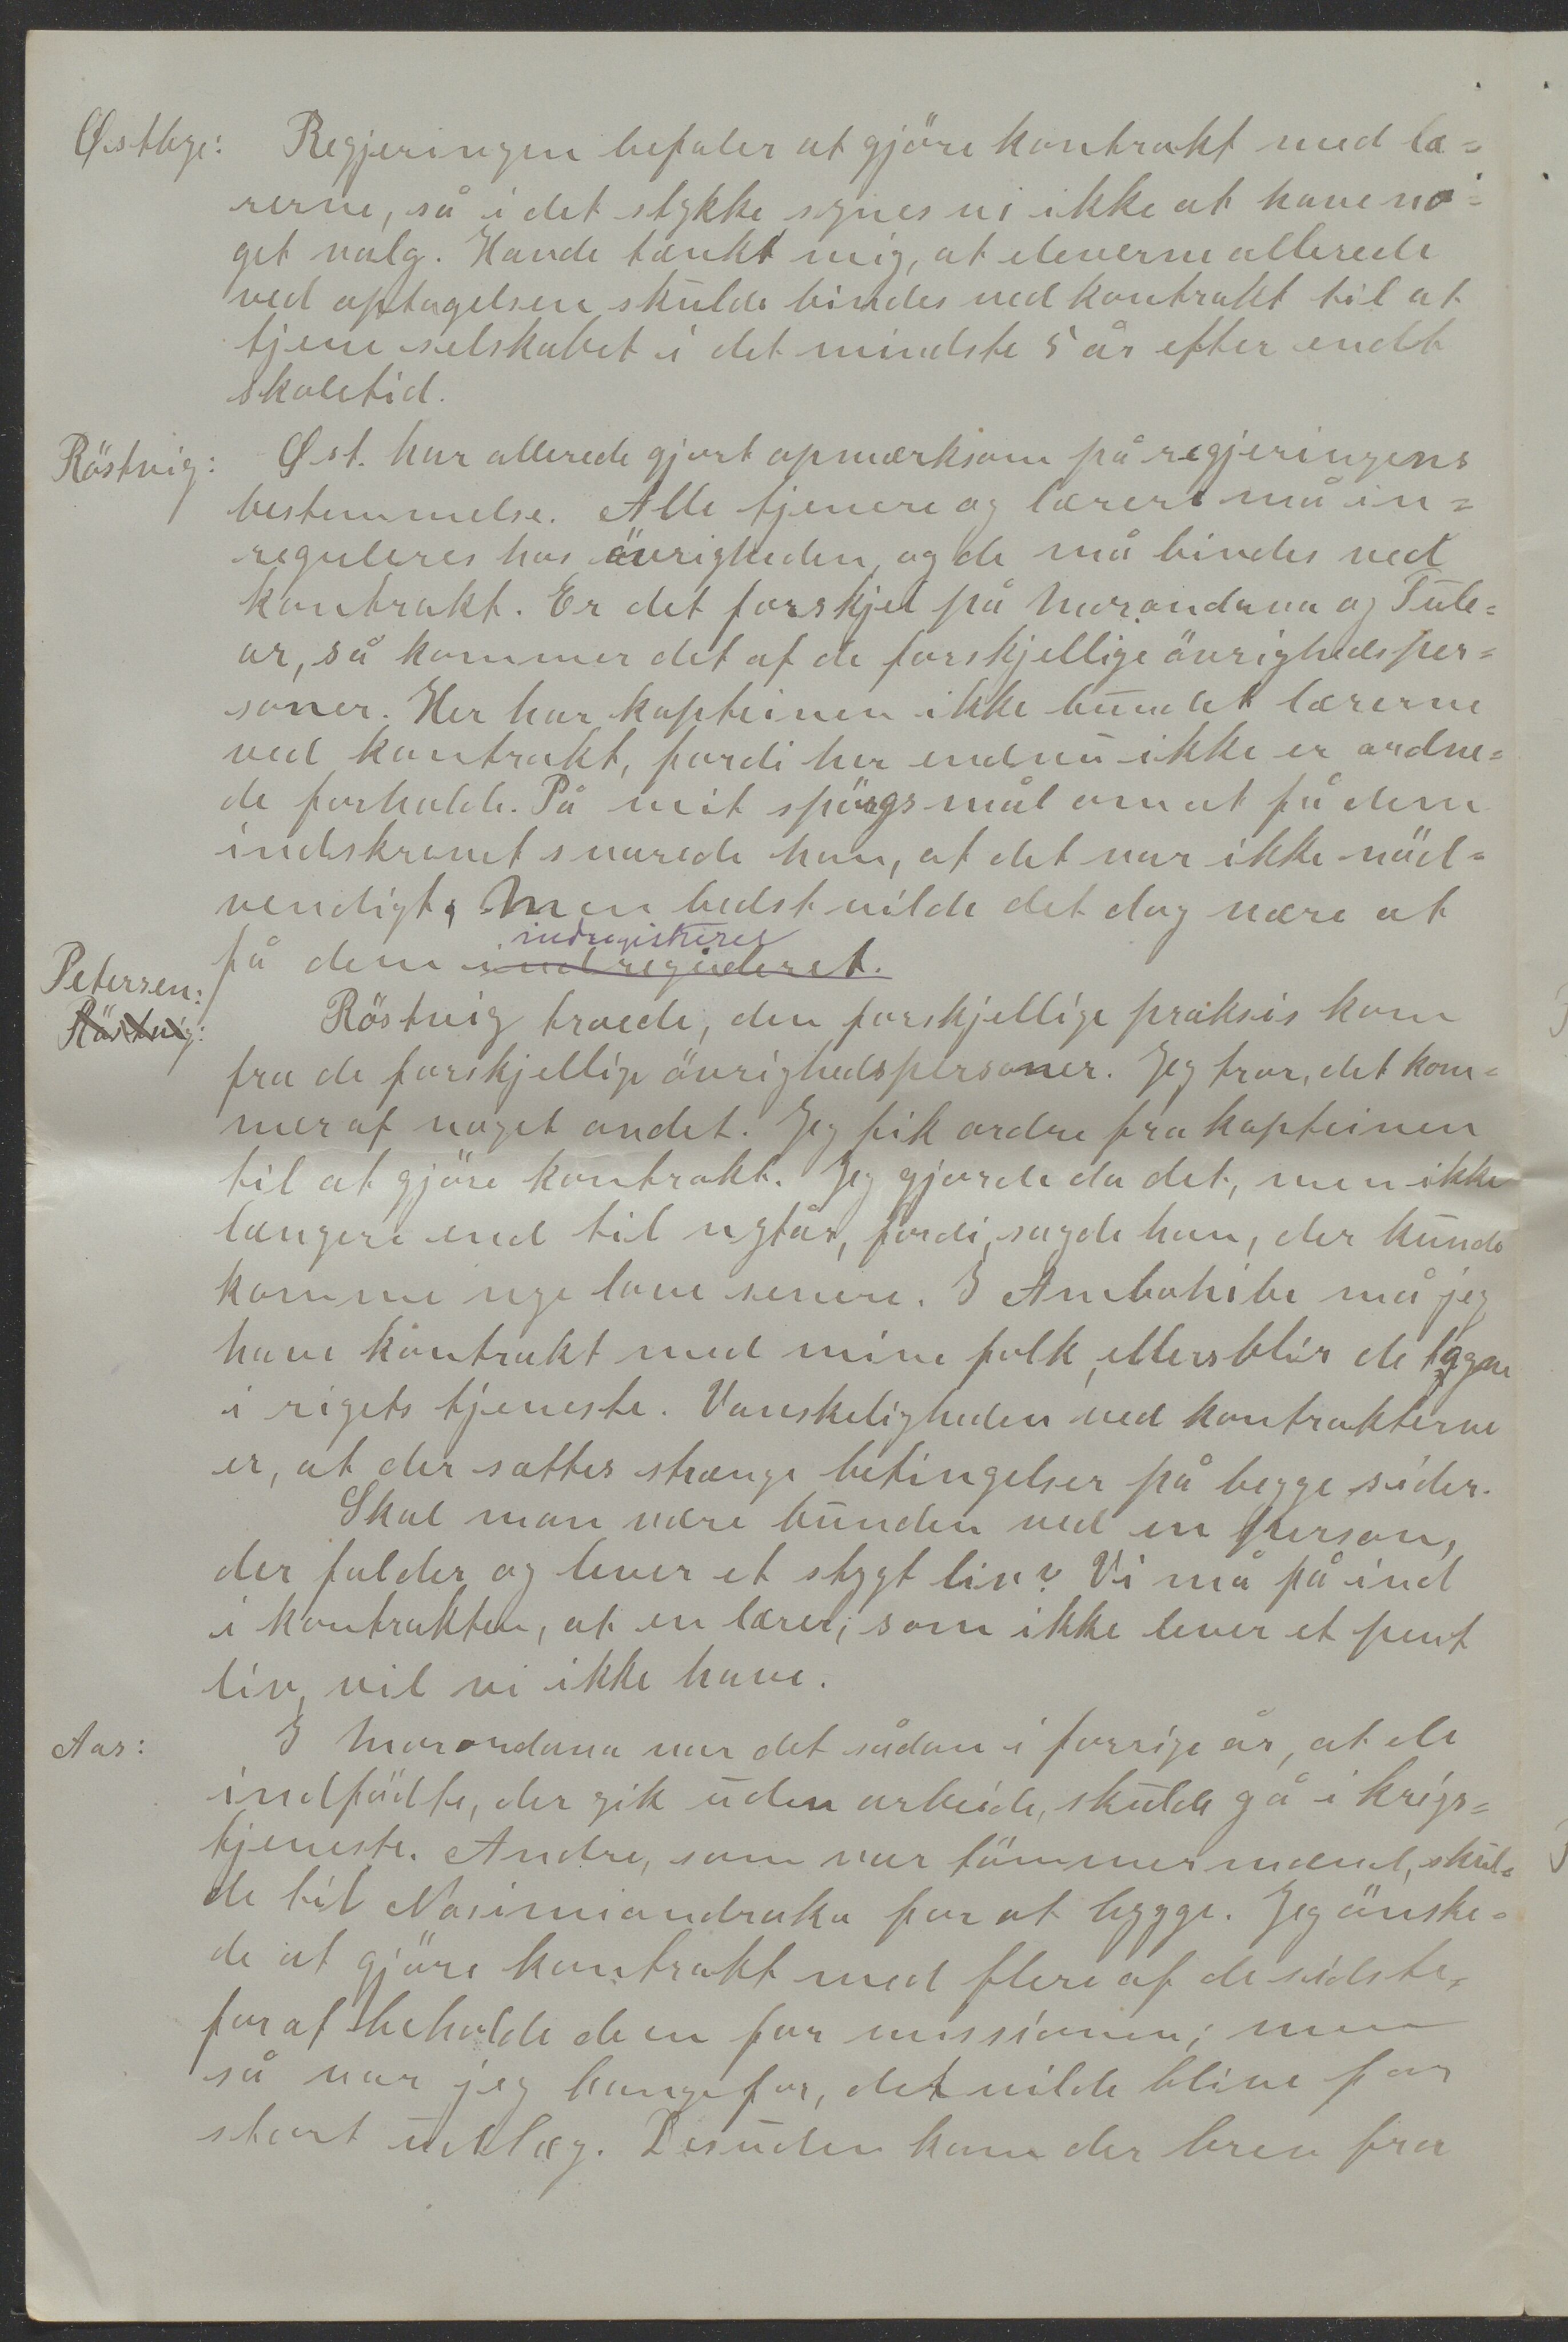 Østbye: Regjeringen befaler at gjöre kontrakt med læ=
rerne, så i det stykke synes vi ikke at have no=
get valg. Havde tænkt mig, at eleverne allerede
ved optagelsen skulde bindes ved kontrakt til at
tjene selskabet i det mindste 5 år efter endt
skoletid.
Röstvig: Øst. har allerede gjort opmærksom på regjeringens
bestemmelse. Alle tjenere og lærere må in=
reguleres hos övrigheden, og de må bindes ved
kontrakt. Er det forskjel på Morondava og Tule=
ar, så kommer det af de forskjellige övrighedsper=
soner. Her har kapteinen ikke bundet lærerne
ved kontrakt, fordi her endnu ikke er ordne=
de forholde. På mit spörgsmål om at få dem
indskrevet svarede han, at det var ikke nöd=
vendigt, Men bedst vilde det dog være at
få dem indreguleret. indregistreret
Petersen:
Röstvig: Röstvig troede, den forskjellige praksis kom
fra de forskjellige övrighedspersoner. Jeg tror, det kom=
mer af noget andet. Jeg fik ordre fra kapteinen
til at gjöre kontrakt. Jeg gjorde da det, men ikke
længere end til nytår, fordi, sagde han, der kunde
komme nye love senere. I Ambohibe må jeg
have kontrakt med mine folk, ellers blir de tagne
i rigets tjeneste. Vanskeligheden ved kontrakterne
er, at der sættes strænge betingelser på begge sider.
Skal man være bunden ved en person,
der falder og lever et stygt liv? Vi må få ind
i kontrakten, at en lærer, som ikke lever et pent
liv, vil vi ikke have.
Aas: I Morondava var det sådan i forrige år, at de
indfödte, der gik uden arbeide, skulde gå i krigs=
tjeneste. Andre, som var tömmermænd, skul=
de til Nosimiandraka for at bygge. Jeg önske=
de at gjöre kontrakt med flere af de sidste,
for at beholde dem for missionen; men
så var jeg bange for, det vilde blive for
stort udlæg. Desuden kom der brev fra